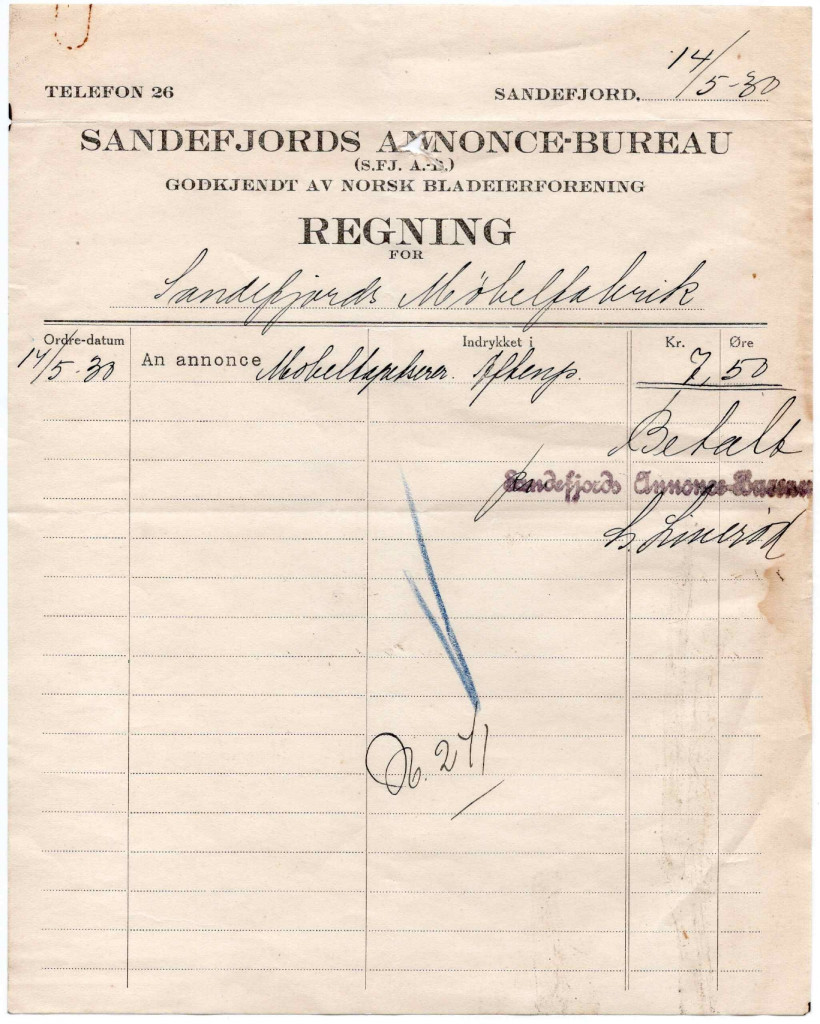 14/5-30
TELEFON 26 SANDEFJORD,
SANDEFJORDS ANNONCE-BUREAU
(S.FJ. A.-B.)
GODKJENDT AV NORSK BLADEIERFORENING
REGNING
FOR
Sandefjords Møbelfabrik
Ordre-datum Indrykket i Kr. Øre
14/5-30 An annonce Møbeltapetserer. Aftenp. 7,50
Betalt
Sandefjords Annonce-Bureau
N. 271